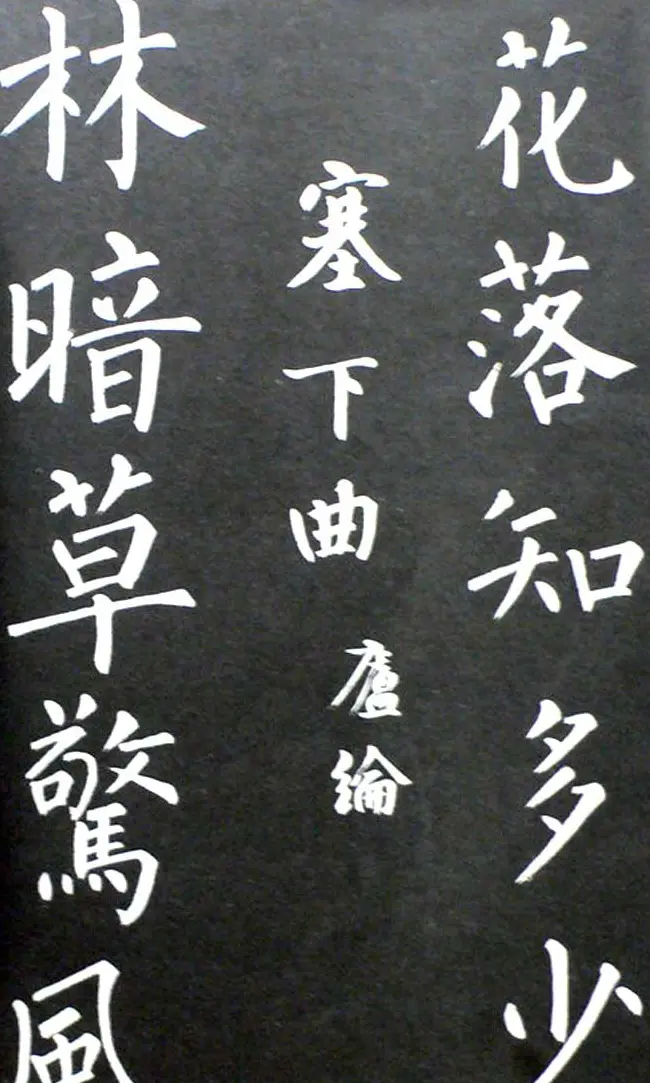 花落知多少
塞下曲
盧綸
林暗草驚風